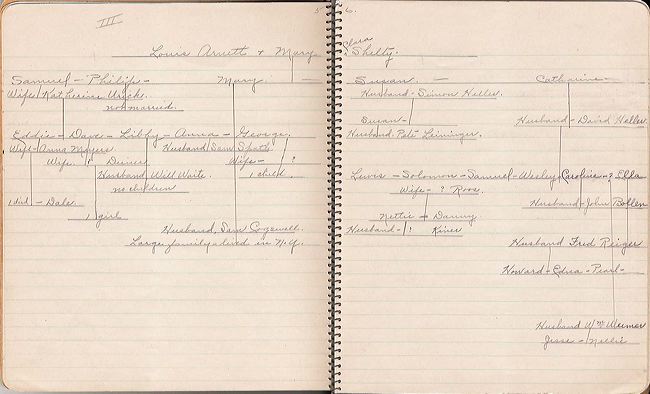 III
Louis Arnett & Mary
Samuel - Philip - Mary -
Wife Katherine Urick.
not married.
Eddie - Dave - Libby - Anna - George.
Wife - Anna Moyers Husband Sam Spath
Wife ? Deiner Wife - ?
Husband Will Waite. 1 child.
no children
1 girl
Husband, Sam Cogswell.
Large family - lived in N.Y.
6.
Clara
Shelly.
Susan - Catharine -
Husband - Simon Haller.
Susan - Husband - David Haller.
Husband, Pete Leininger.
Lewis - Solomon - Samuel - Wesley - Caroline - ? Ella
Wife - ? Roos.
Husband - John Bollen
Nettie - Danny
Husband - ?
Husband Fred Reiger
Howard - Edna - Pearl -
Husband Wm Weimer
Jesse - Nellie